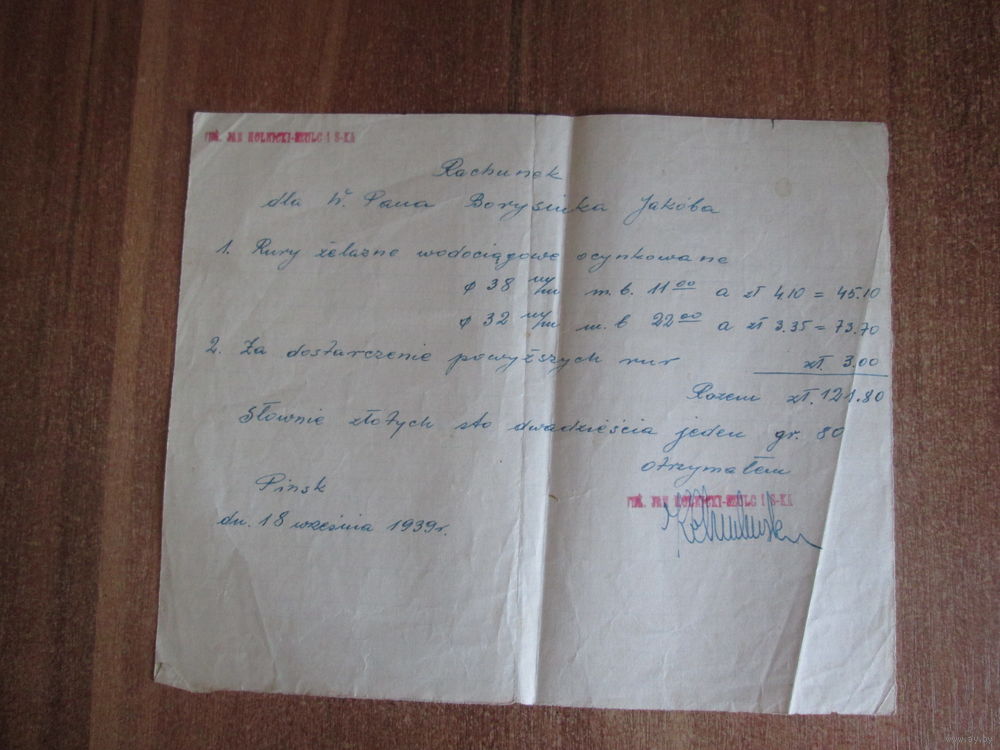 INŻ. JAN HOLNICKI-SZULC I S-KA
Rachunek
dla W. Pana Borysiuka Jakóba
1. Rury żelazne wodociągowe ocynkowane
ø 38 m/m m.b. 11⁰⁰ a zł 4.10 = 45.10
ø 32 m/m m.b 22⁰⁰ a zł 3.35 = 73.70
2. Za dostarczenie powyższych rur zł. 3.00
Razem zł. 121.80
Słownie złotych sto dwadzieścia jeden gr. 80
otrzymałem
INŻ. JAN HOLNICKI-SZULC I S-KA
Pinsk
dn. 18 września 1939r.
www.ay.by